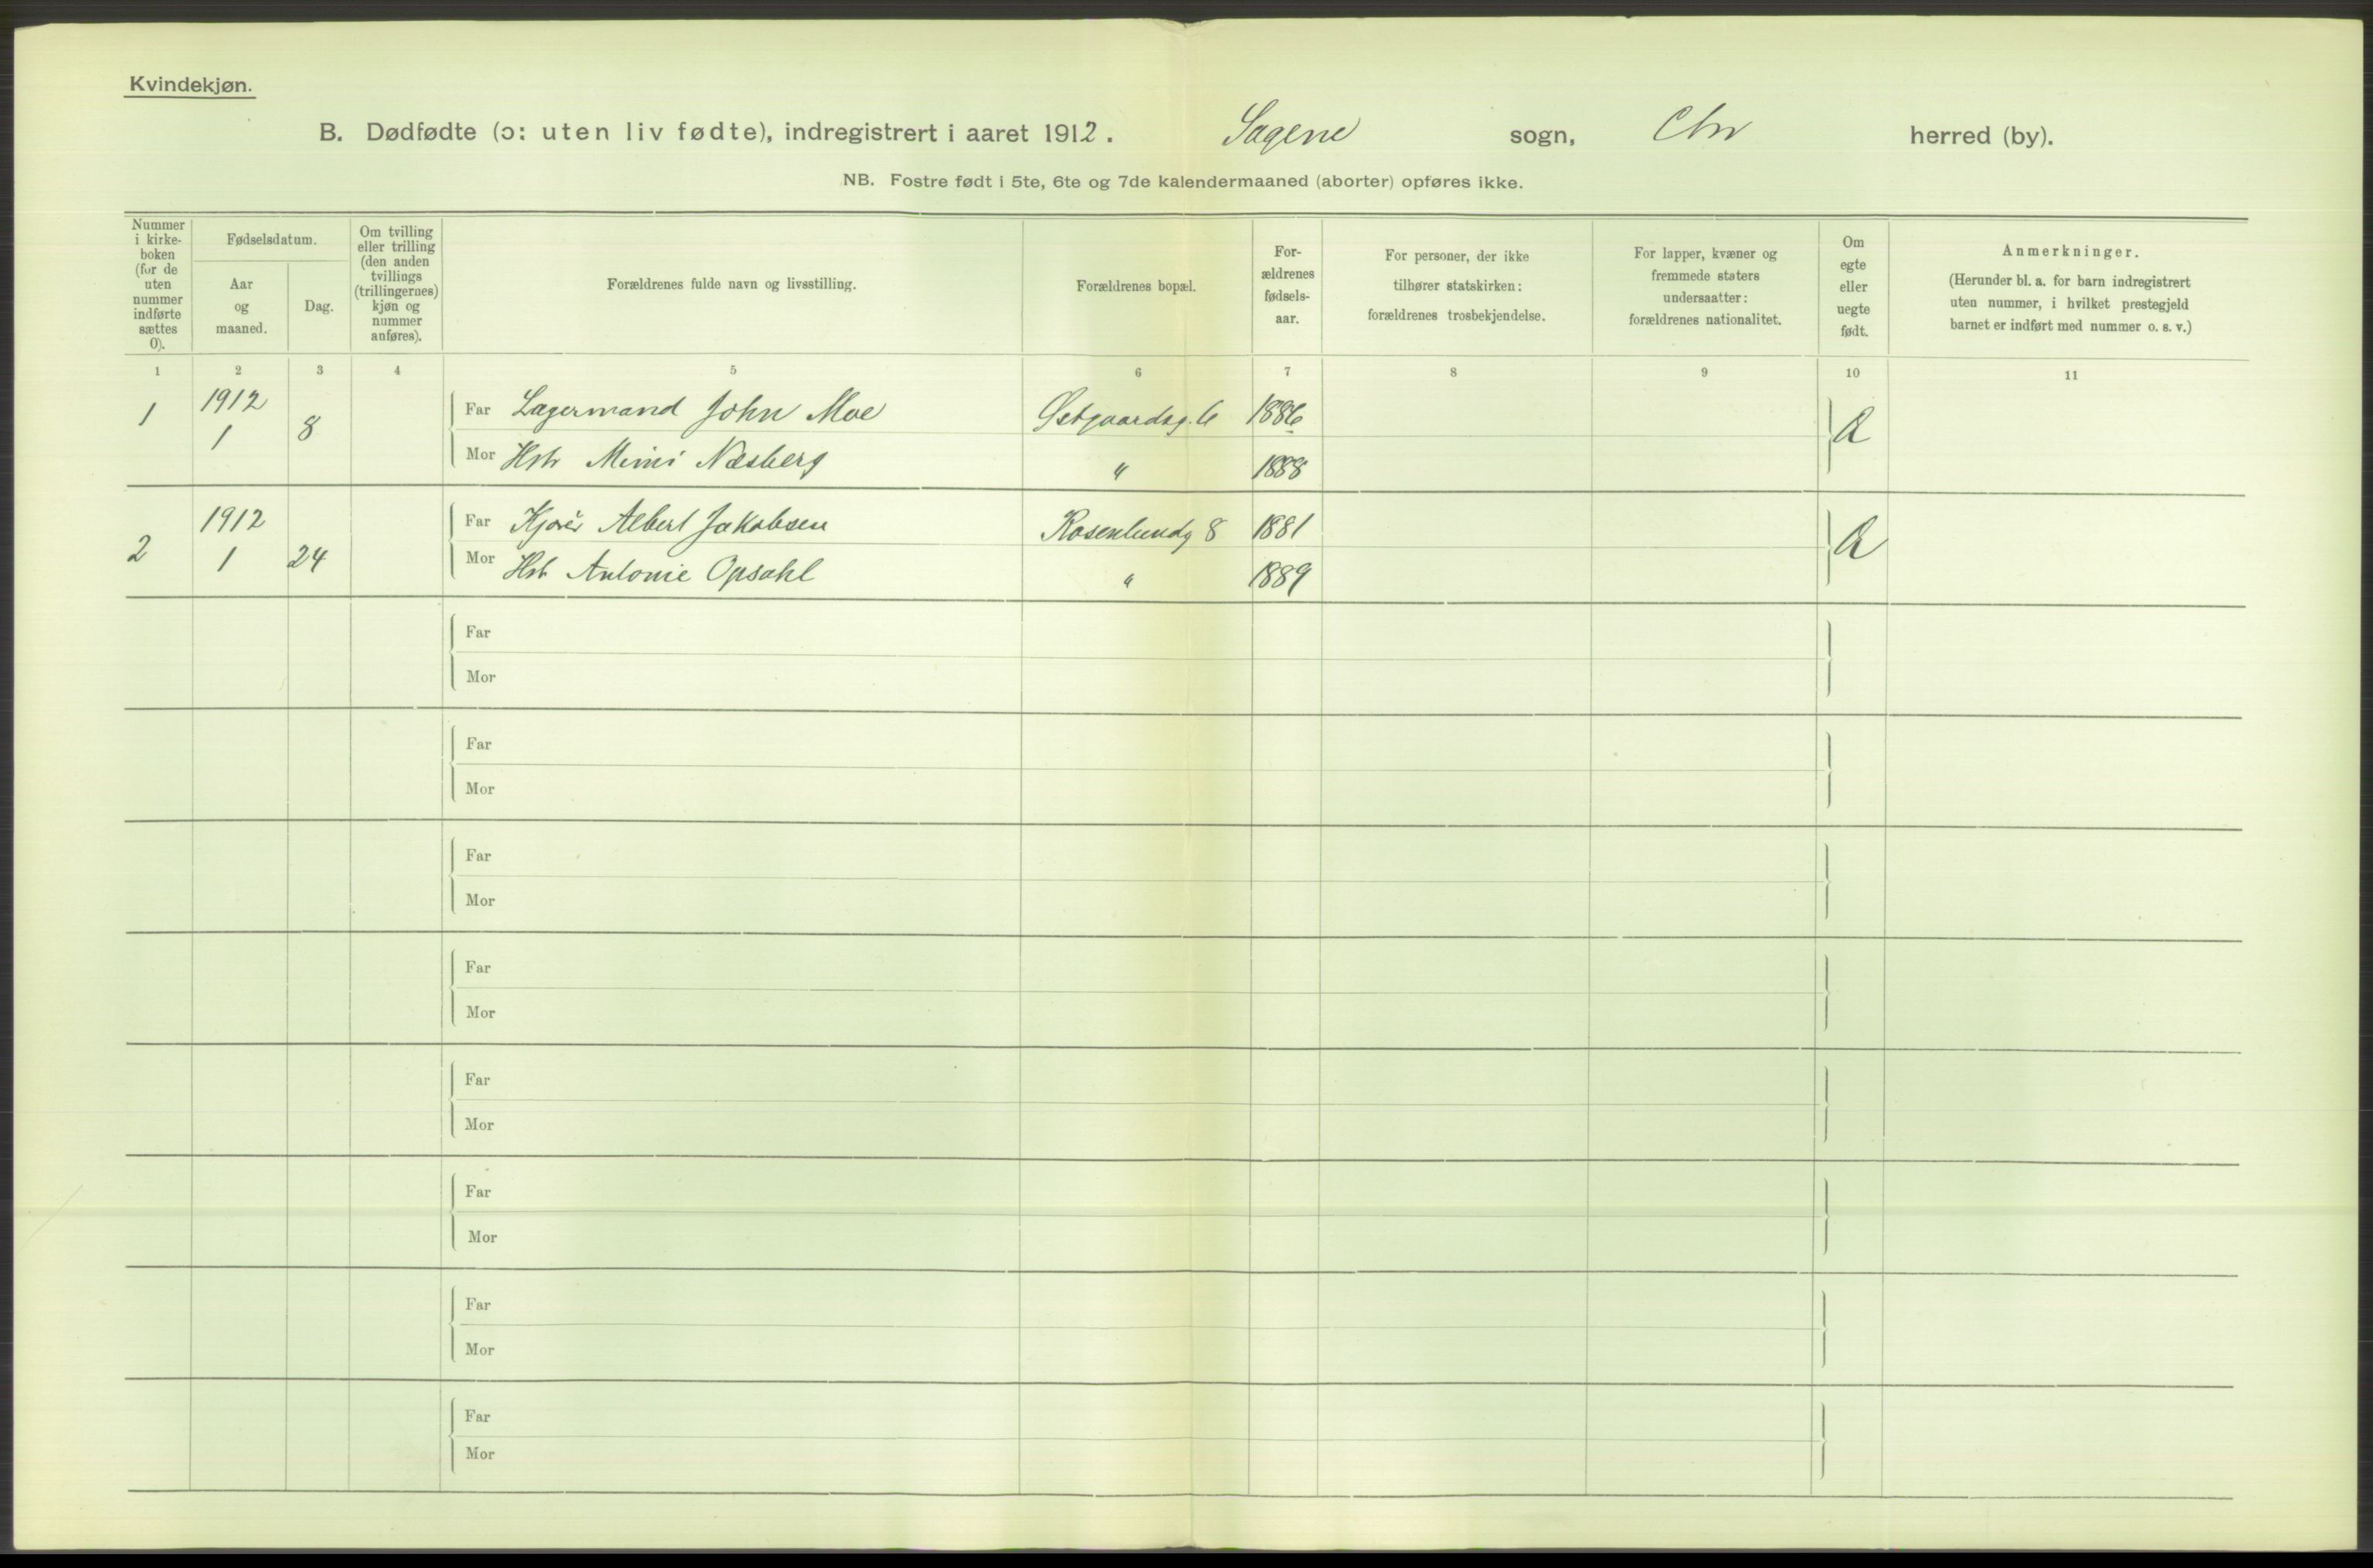 Kvindekjøn.
B. Dødfødte (ɔ: uten liv fødte), indregistrert i aaret 1912. Sagene sogn, Chr herred (by).
NB. Fostre født i 5te, 6te og 7de kalendermaaned (aborter) opføres ikke.
Nummer
i kirke-
boken
(for de
uten
nummer
indførte
sættes
0).
Fødselsdatum.
Aar
og
maaned.
Dag.
Om tvilling
eller trilling
(den anden
tvillings
(trillingernes)
kjøn og
nummer
anføres).
Forældrenes fulde navn og livsstilling.
Forældrenes bopæl.
For-
ældrenes
fødsels-
aar.
For personer, der ikke
tilhører statskirken:
forældrenes trosbekjendelse.
For lapper, kvæner og
fremmede staters
undersaatter:
forældrenes nationalitet.
Om
egte
eller
uegte
født.
Anmerkninger.
(Herunder bl. a. for barn indregistrert
uten nummer, i hvilket prestegjeld
barnet er indført med nummer o. s. v.)
1 2 3 4 5 6 7 8 9 10 11
1 1912 1 8 Far Lagermand John Moe Østgaardsg. 6 1886
Mor Hstr Mimi Næsberg " 1888
2 1912 1 24 Far Kjører Albert Jakobsen Rosenlundg 8 1881
Mor Hst Antonie Opsahl " 1889
Far
Mor
Far
Mor
Far
Mor
Far
Mor
Far
Mor
Far
Mor
Far
Mor
Far
Mor